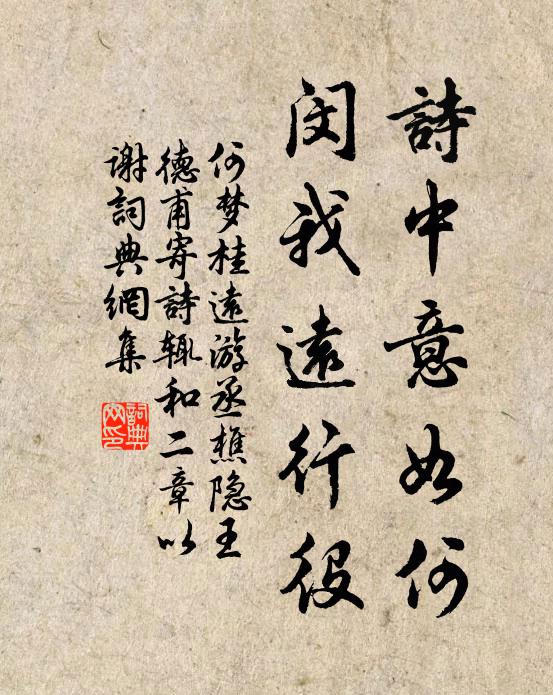 詩中意如何
閔我遠行役
何梦桂遠游丞樵隐王
德甫寄詩辄和二章以
谢詞典網集
詞典
网印